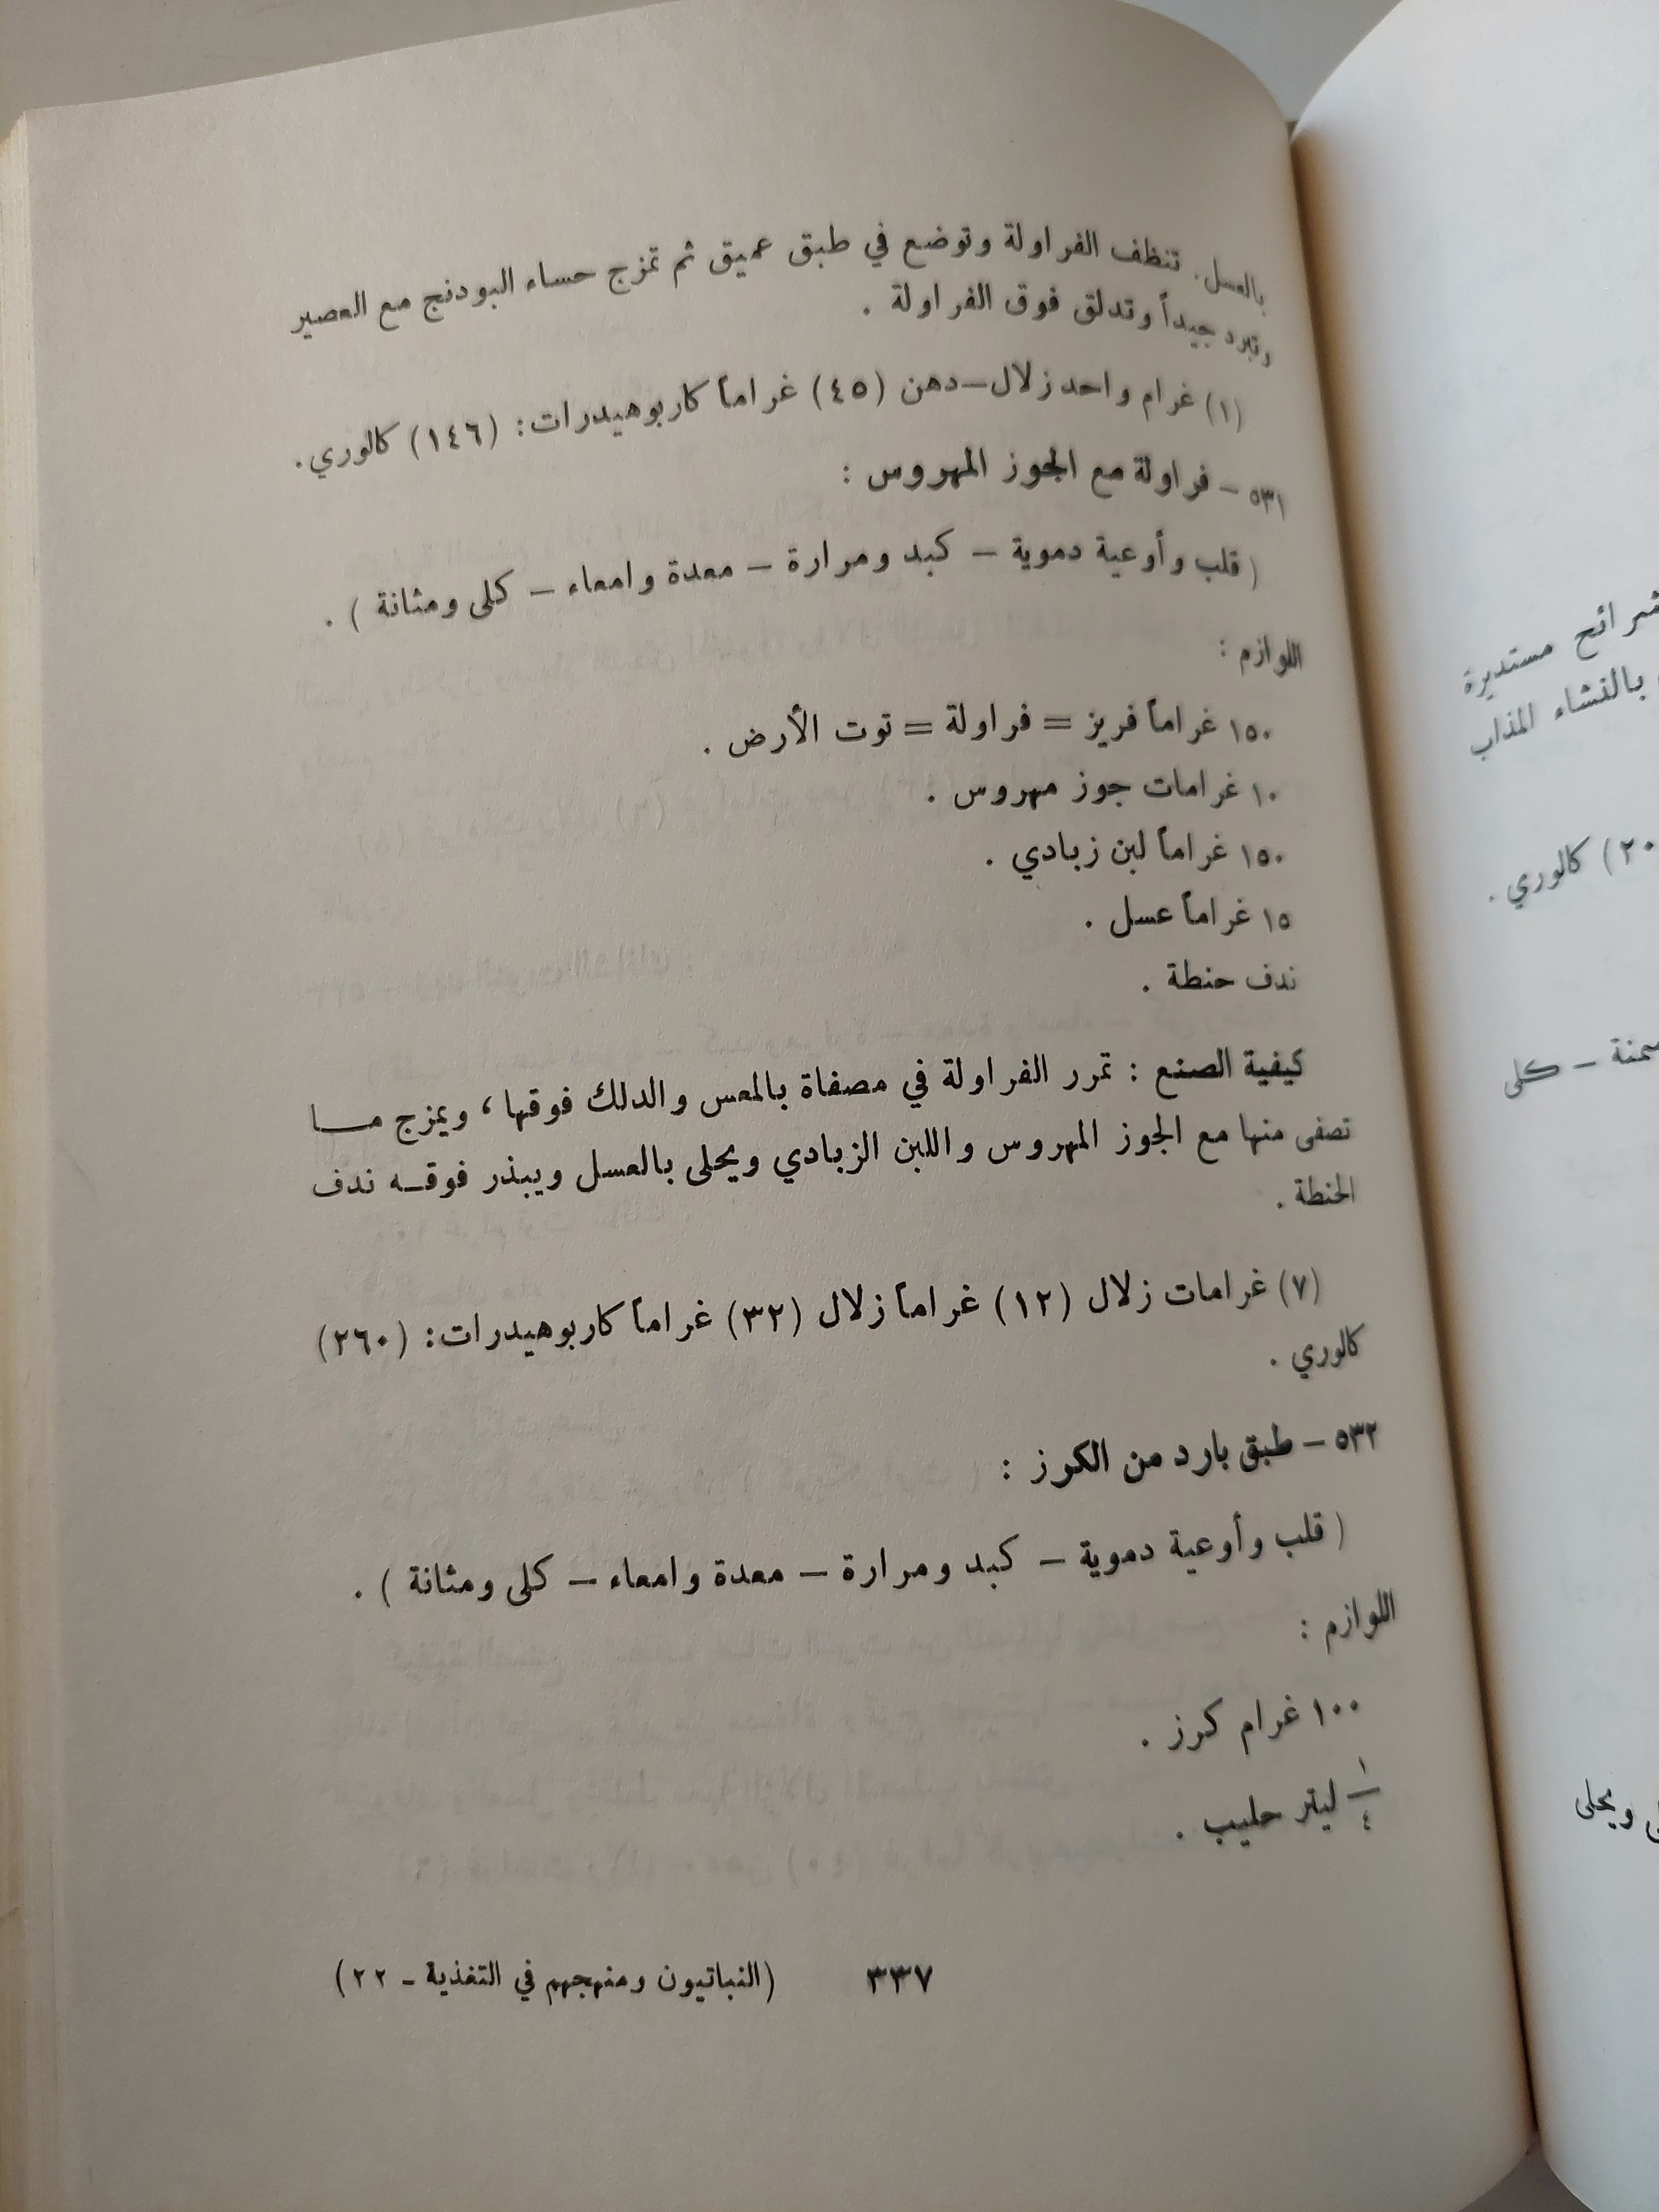 بالعسل. تنظف الفراولة وتوضع في طبق عميق ثم تمزج حساء البودنج مع العصير
وتبرد جيداً وتدلق فوق الفراولة .
(١) غرام واحد زلال–دهن (٤٥) غراماً كاربوهيدرات: (١٤٦) كالوري.
٥٣١ – فراولة مع الجوز المهروس :
( قلب وأوعية دموية – كبد ومرارة – معدة وامعاء – كلى ومثانة ) .
اللوازم :
١٥٠ غراماً فريز = فراولة = توت الأرض .
١٠ غرامات جوز مهروس .
١٥٠ غراماً لبن زبادي .
١٥ غراماً عسل .
ندف حنطة .
كيفية الصنع : تمرر الفراولة في مصفاة بالمعس والدلك فوقها ، ويمزج مـــا
تصفى منها مع الجوز المهروس واللبن الزبادي ويحلى بالعسل ويبذر فوقـه ندف
الحنطة .
(٧) غرامات زلال (١٢) غراماً زلال (٣٢) غراماً كاربوهيدرات: (٢٦٠)
كالوري .
٥٣٢ – طبق بارد من الكرز :
( قلب وأوعية دموية – كبد ومرارة – معدة وامعاء – كلى ومثانة ) .
اللوازم :
١٠٠ غرام كرز .
١/٤ ليتر حليب .
٣٣٧ (النباتيون ومنهجهم في التغذية - ٢٢)
شرائح مستديرة
بالنشاء المذاب
٢٠) كالوري .
سمنة – كلى
ويحلى